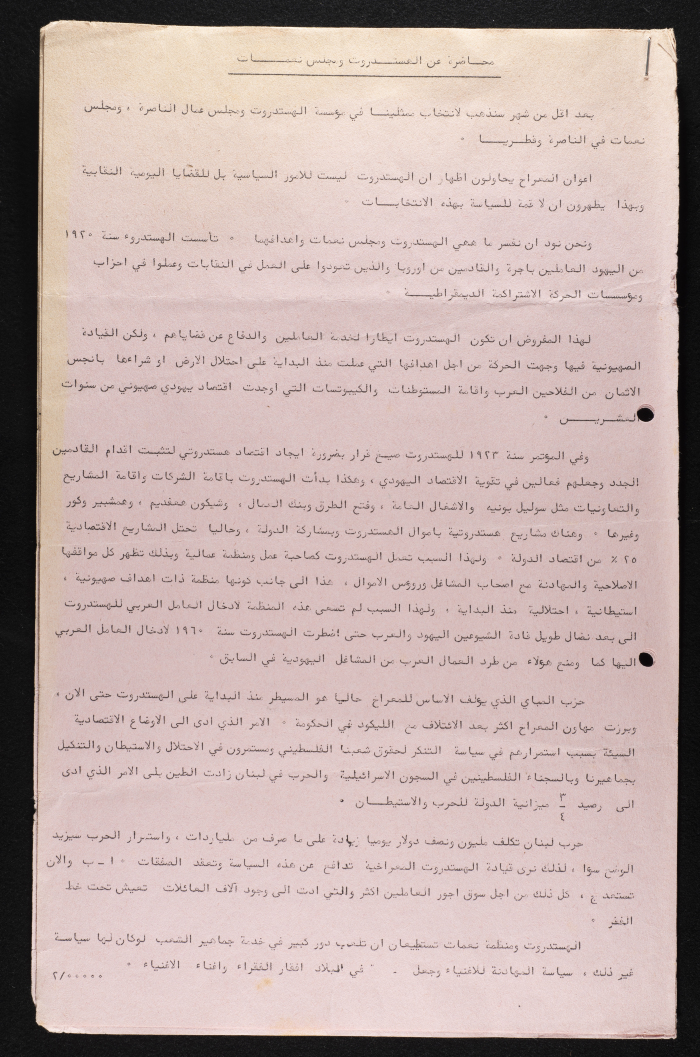 محاضرة عن الهستدروت ومجلس نعمات
بعد اقل من شهر سنذهب لانتخاب ممثلينا في مؤسسة الهستدروت ومجلس عمال الناصرة ، ومجلس
نعمات في الناصرة وقطريا ٠
اعوان المعراح يحاولون اظهار ان الهستدروت ليست للامور السياسية بل للقضايا اليومية النقابية
وبهذا يظهرون ان لا قمة للسياسة بهذه الانتخابات ٠
ونحن نود ان نفسر ما هي الهستدروت ومجلس نعمات واهدافهما ٠ تأسست الهستدروء سنة ١٩٢٠
من اليهود العاملين باجرة والقادمين من اوروبا والذين تعودوا على العمل في النقابات وعملوا في احزاب
ومؤسسات الحركة الاشتراكمة الديمقراطية ٠
لهذا المفروض ان تكون الهستدروت ايطارا لخدمة العاملين والدفاع عن قضاياهم ، ولكن القيادة
الصهيونية فيها وجهت الحركة من اجل اهدافها التي عملت منذ البداية على احتلال الارض او شراءها بانجس
الاثمان من الفلاحين العرب واقامة المستوطنات والكيبوتسات التي اوجدت اقتصاد يهودي صهيوني من سنوات
العشرين ٠
وفي المؤتمر سنة ١٩٢٣ للهستدروت صيغ قرار بضرورة ايجاد اقتصاد هستدروتي لتثبيت اقدام القادمين
الجدد وجعلهم فعالين في تقوية الاقتصاد اليهودي ، وهكذا بدأت الهستدروت باقامة الشركات واقامة المشاريع
والتعاونيات مثل سوليل بونيه والاشغال العامة ، وفتح الطرق وبنك العمال ، وشيكون همفديم ، وهمشبير وكور
وغيرها ٠ وهناك مشاريع هستدروتية باموال الهستدروت وبمشاركة الدولة ، وحاليا تحتل المشاريع الاقتصادية
٢٥ ٪ من اقتصاد الدولة ٠ ولهذا السبب تعمل الهستدروت كصاحبة عمل ومنظمة عمالية وبذلك تظهر كل مواقفها
الاصلاحية والمهادنة مع اصحاب المشاغل ورؤوس الاموال ، هذا الى جانب كونها منظمة ذات اهداف صهيونية ،
استيطانية ، احتلالية منذ البداية ، ولهذا السبب لم تسعى هذه المنظمة لادخال العامل العربي للهستدروت
الى بعد نضال طويل قادة الشيوعين اليهود والعرب حتى اضطرت الهستدروت سنة ١٩٦٠ لادخال العامل العربي
اليها كما ومنع هؤلاء من طرد العمال العرب من المشاغل اليهودية في السابق ٠
حزب المباي الذي يؤلف الاساس للمعراخ حاليا هو المسيطر منذ البداية على الهستدروت حتى الان ،
وبرزت مهاون المعراح اكثر بعد الائتلاف مع الليكود في الحكومة ٠ الامر الذي ادى الى الاوضاع الاقتصادية
السيئة بسبب استمرارهم في سياسة التنكر لحقوق شعبنا الفلسطيني ومستمرون في الاحتلال والاستيطان والتنكيل
بجماهيرنا وبالسجناء الفلسطينين في السجون الاسرائيلية والحرب في لبنان زادت الطين بلى الامر الذي ادى
الى رصيد ٣/٤ ميزانية الدولة للحرب والاستيطان ٠
حرب لبنان تكلف مليون ونصف دولار يوميا زيادة على ما صرف من ملياردات ، واستمرار الحرب سيزيد
الوضع سوا ، لذلك نرى قيادة الهستدروت المعراخية تدافع عن هذه السياسة وتعقد الصفقات ٠ ا ـ ب والان
تستعد ج ، كل ذلك من اجل سوق اجور العاملين اكثر والتي ادت الى وجود آلاف العائلات تعيش تحت خط
الفقر ٠
الهستدروت ومنظمة نعمات تستطيعان ان تلعب دور كبير في خدمة جماهير الشعب لوكان لها سياسة
غير ذلك ، سياسة المهادنة للاغنياء وجعل ـ " في البلاد افقار الفقراء واغناء الاغنياء "
٢/٠٠٠٠٠